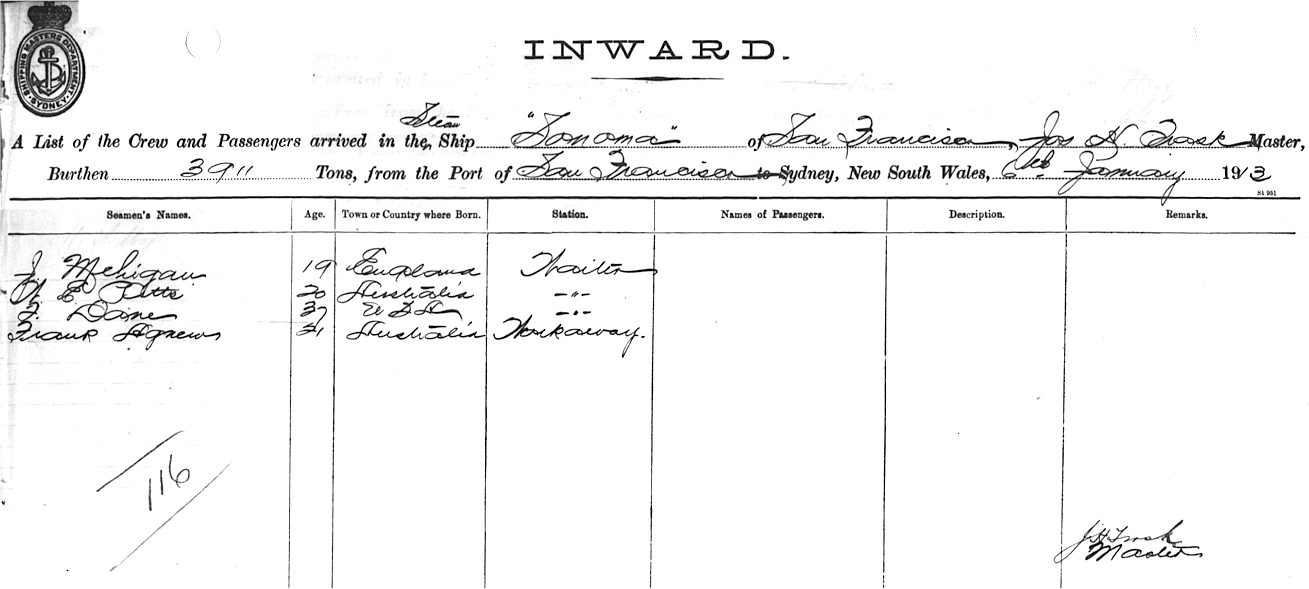 SHIPPING MASTERS DEPARTMENT SYDNEY
INWARD.
Steam
A List of the Crew and Passengers arrived in the Ship "Sonoma" of San Francisco, Jos H. Trask Master,
Burthen 3911 Tons, from the Port of San Francisco to Sydney, New South Wales, January 1913
Seamen's Names. Age. Town or Country where Born. Station. Names of Passengers. Description. Remarks.
J Mehigan 19 England Waiter
E Potts 20 Australia -"-
F. Dane 37 U S A -"-
Frank Agnew 21 Australia Workaway.
116
J H Trask
Master